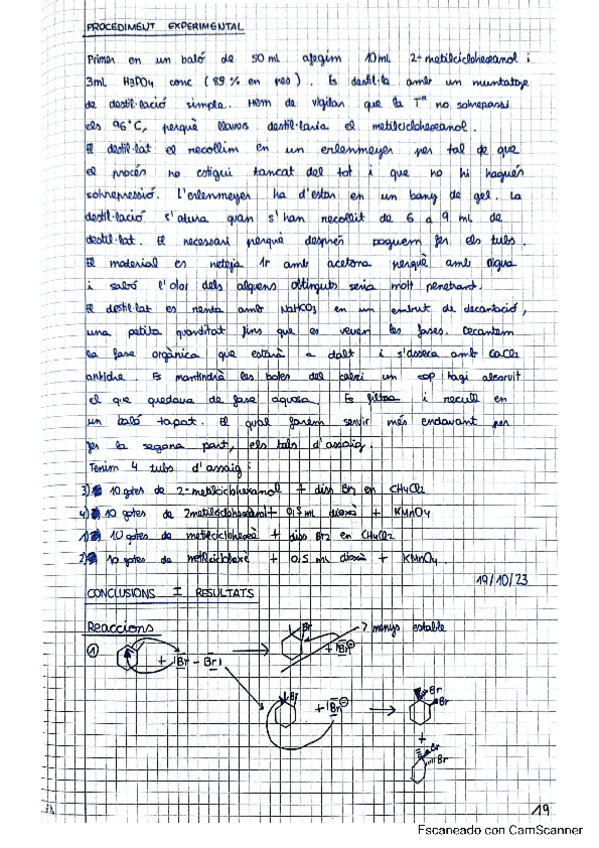 PROCEDIMENT EXPERIMENTAL
Primer en un baló de 50 mL afegim 10 mL 2-metilciclohexanol i
3mL H3PO4 conc (89 % en pes). Es destil·la amb un muntatge
de destil·lació simple. Hem de vigilar que la Tª no sobrepassi
els 96°C, perquè llavors destil·laria el metilciclohexanol.
El destil·lat el recollim en un erlenmeyer per tal de que
el procés no estigui tancat del tot i que no hi hagués
sobrepressió. L'erlenmeyer ha d'estar en un bany de gel. La
destil·lació s'atura quan s'han recollit de 6 a 9 mL de
destil·lat. És necessari perquè després poguem fer els tubs.
El material es neteja 1r amb acetona perquè amb aigua
i sabó l'olor dels alquens obtinguts seria molt penetrant.
El destil·lat es renta amb NaHCO3 en un embut de decantació,
una petita quantitat fins que es veuen les fases. Decantem
la fase orgànica que estarà a dalt i s'asseca amb CaCl2
anhidre. Es mantindrà les boles del calci un cop hagi absorvit
el que quedava de fase aquosa. Es filtra i recull en
un baló tapat. El qual farem servir més endavant per
fer la segona part, els tubs d'assaig.
Tenim 4 tubs d'assaig:
3) 10 gotes de 2-metilciclohexanol + diss Br2 en CH4Cl2
4) 10 gotes de 2metilciclohexanol + 0,5 mL dioxà + KMnO4
1) 10 gotes de metilciclohexè + diss Br2 en CH4Cl2
2) 10 gotes de metilciclohexè + 0,5 mL dioxà + KMnO4.
19/10/23
CONCLUSIONS I RESULTATS
Reaccions
→ menys estable
① + Br - Br → Br + Br⊖
Br + Br⊖ → Br Br
+
Br Br
19
Escaneado con CamScanner